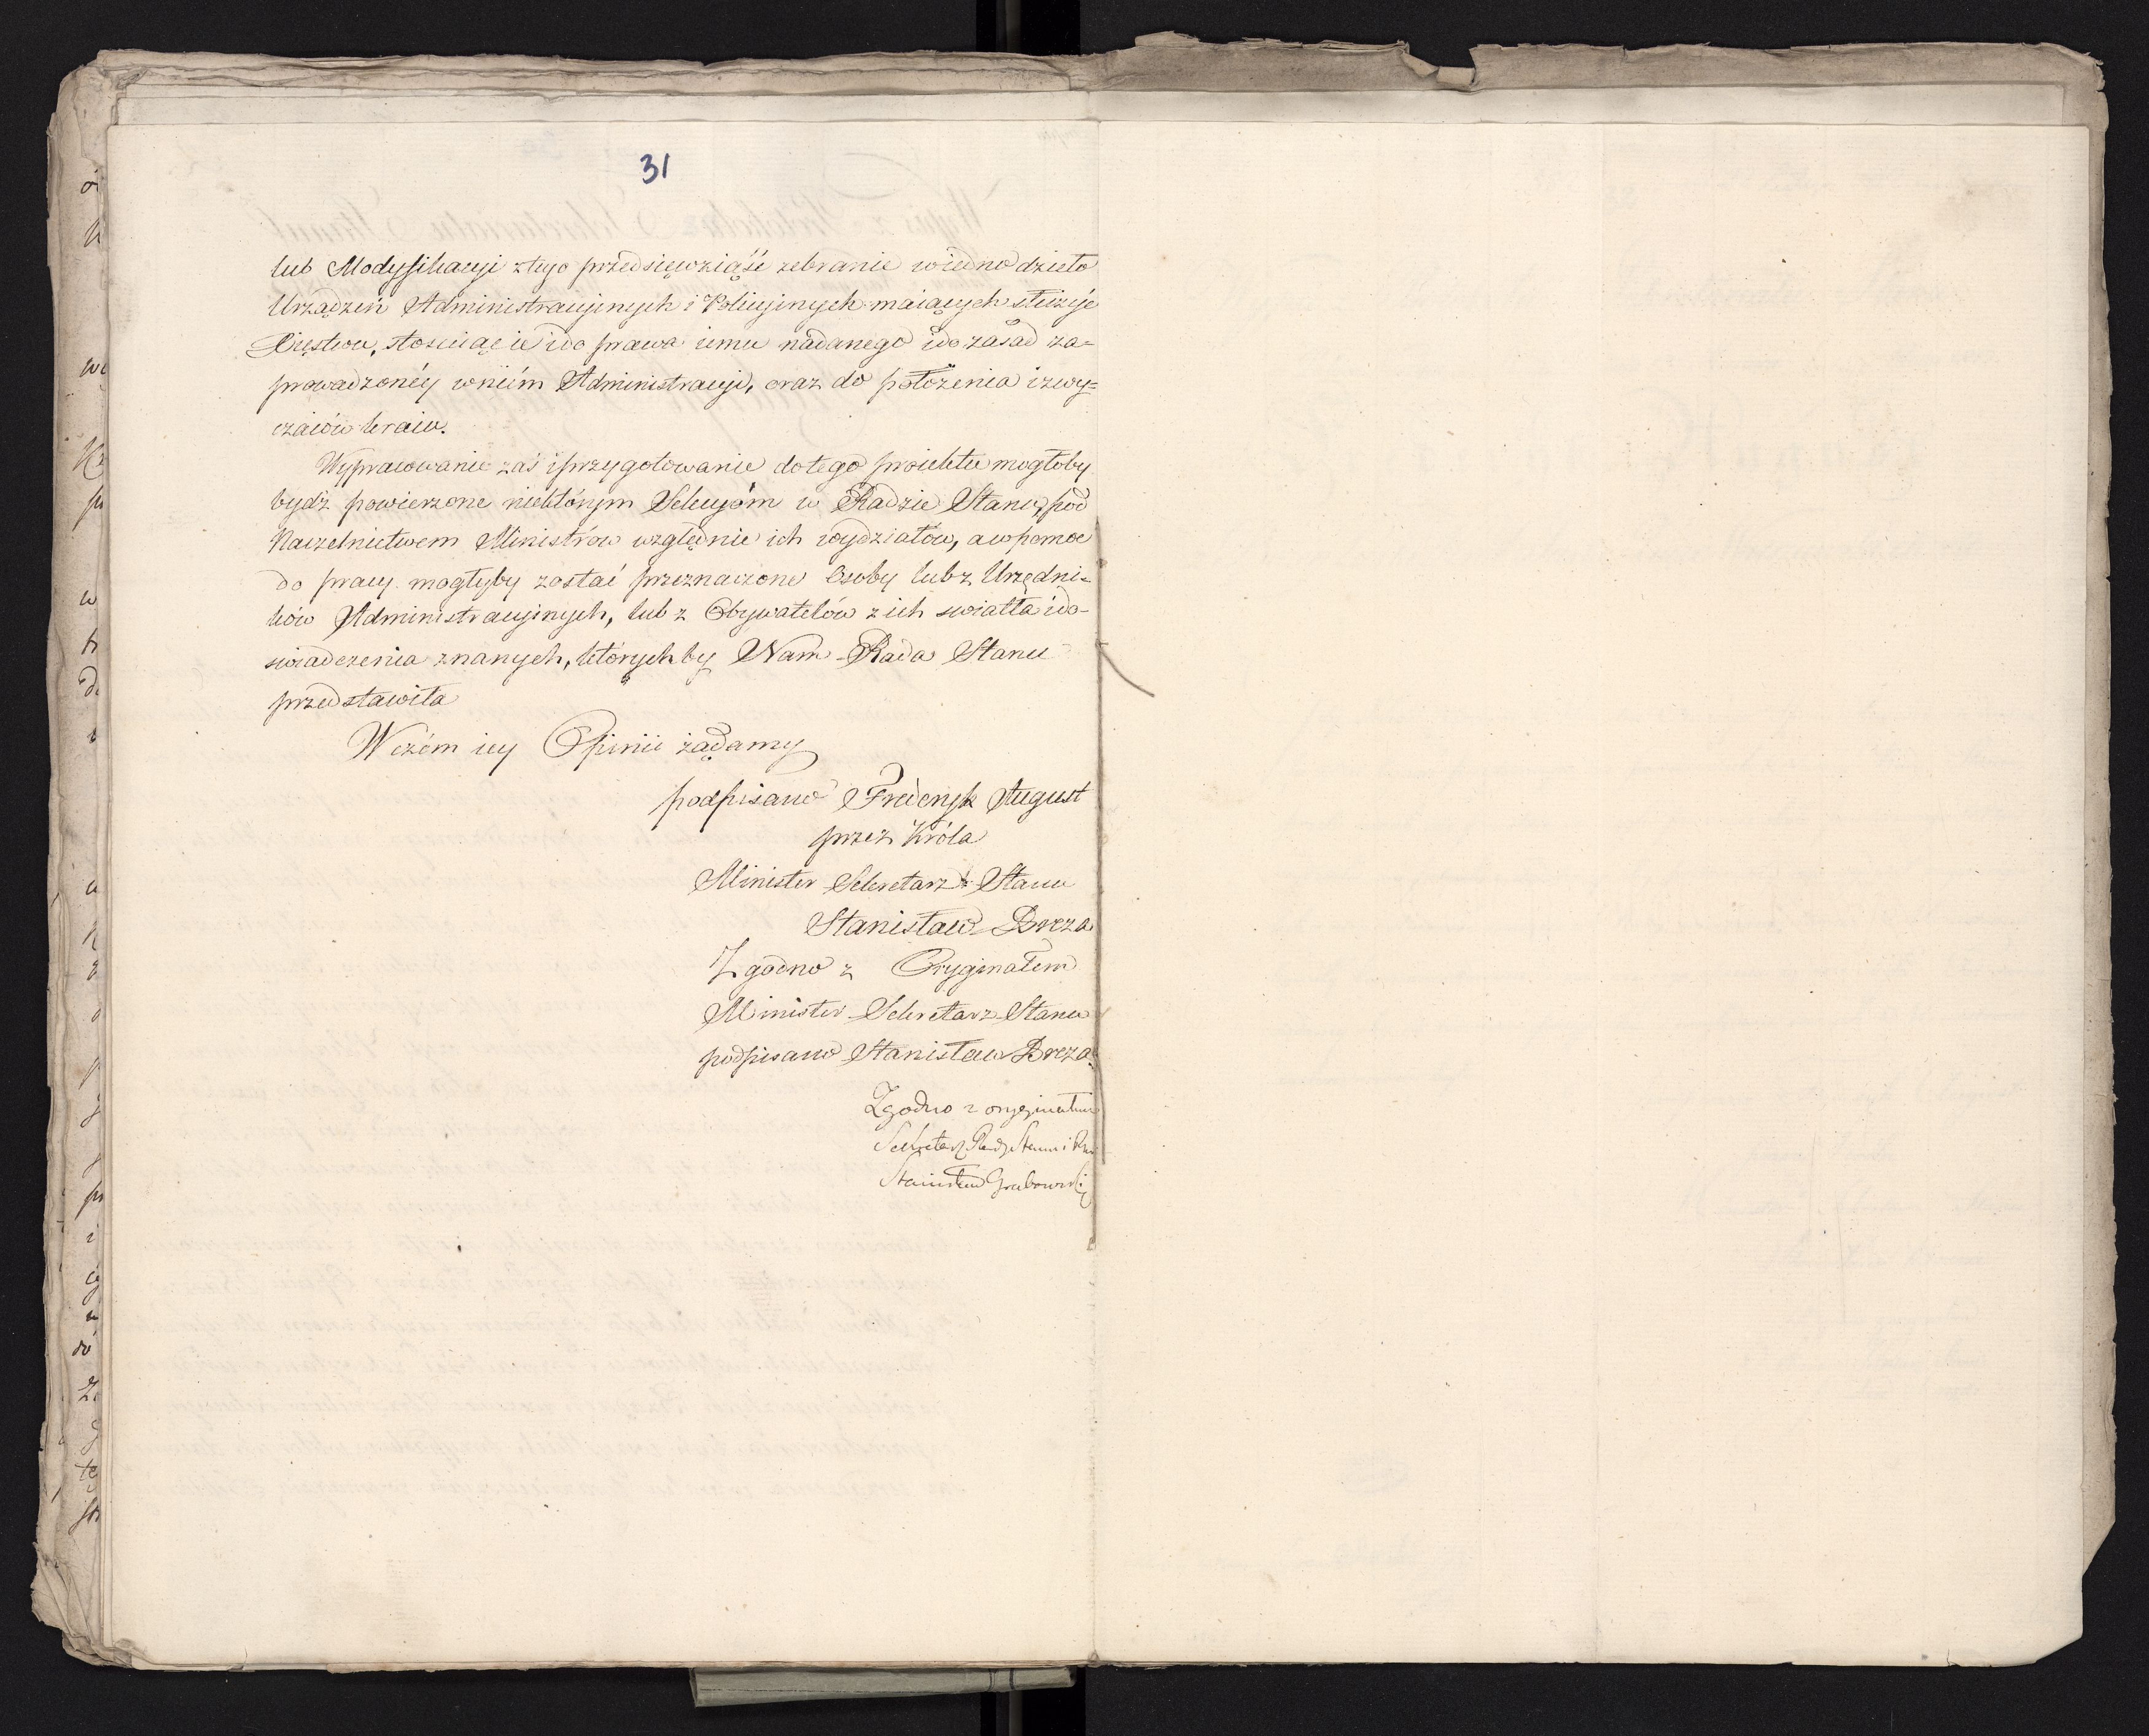 31
lub Modyfikacyi ztego przedsięwziąść zebranie wiedno dzieło
Urządzeń Administracyinych i Policyinych maiących służyć
Xięstwu, stosuiąc ie ido prawa iemu nadanego ido zasad za-
prowadzonéy wniém Administracyi, oraz do położenia izwy=
czaiów kraiu.
Wypracowanie zaś iprzygotowanie dotego proiektu mogłoby
bydź powierzone niektórym Sekcyóm w Radzie Stanu, pod
Naczelnictwem Ministrów względnie ich wydziałów, awpomoc
do pracy mogłyby zostać przeznaczone Osoby lub z Urzędni=
ków Administracyinych, lub z Obywatelów z ich swiatła ido-
swiadczenia znanych, którychby Nam Rada Stanu
przedstawiła
Wczém iey Opinii żądamy
podpisano Frideryk August
przez Króla
Minister Sekretarz Stanu
Stanisław Breza
Zgodno z Oryginałem
Minister Sekretarz Stanu
podpisano Stanisław Breza
Zgodno z oryginałem
Sekretarz Rady Stanu i
Stanisław Grabowski